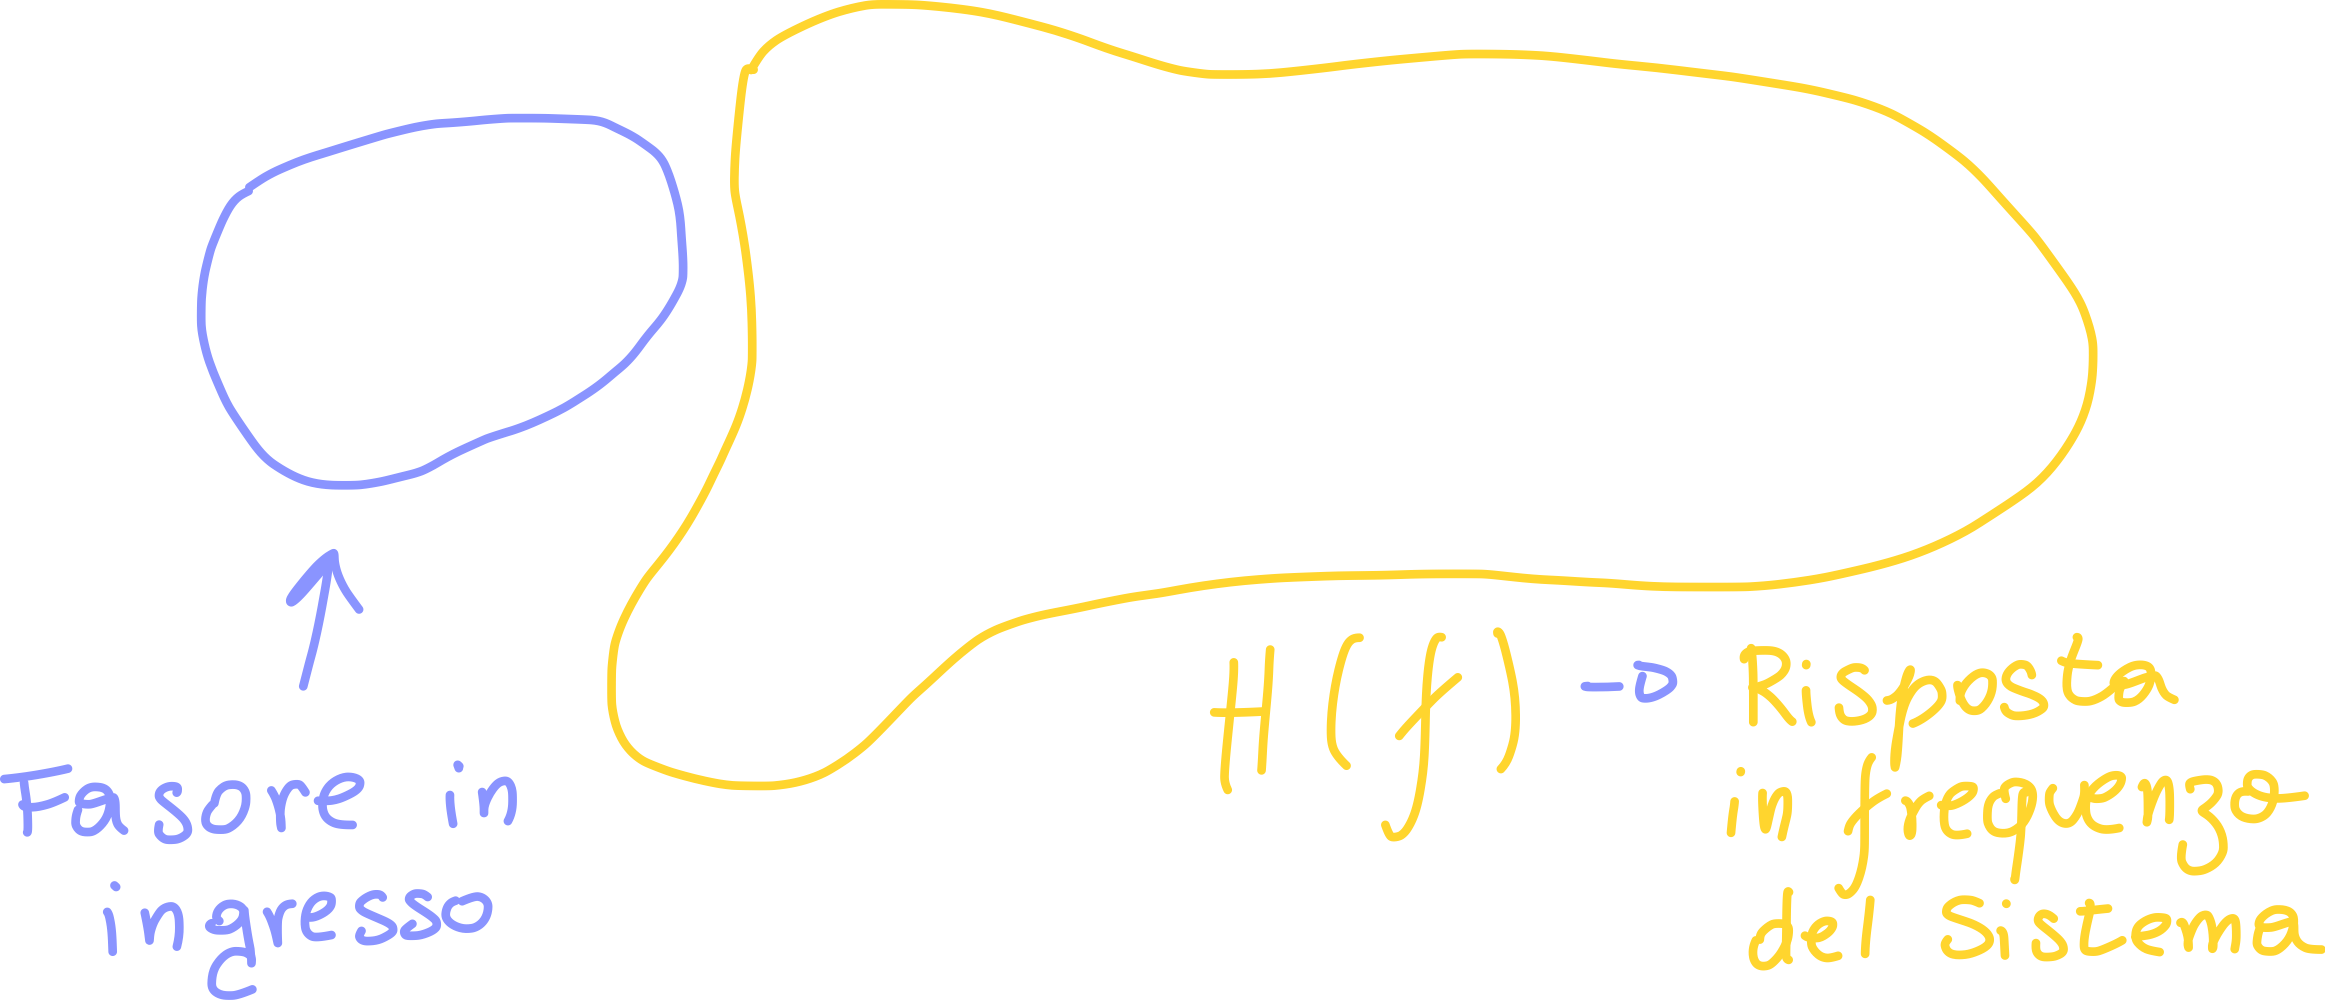 Fasore in
ingresso
H(f) → Risposta
in frequenza
del Sistema